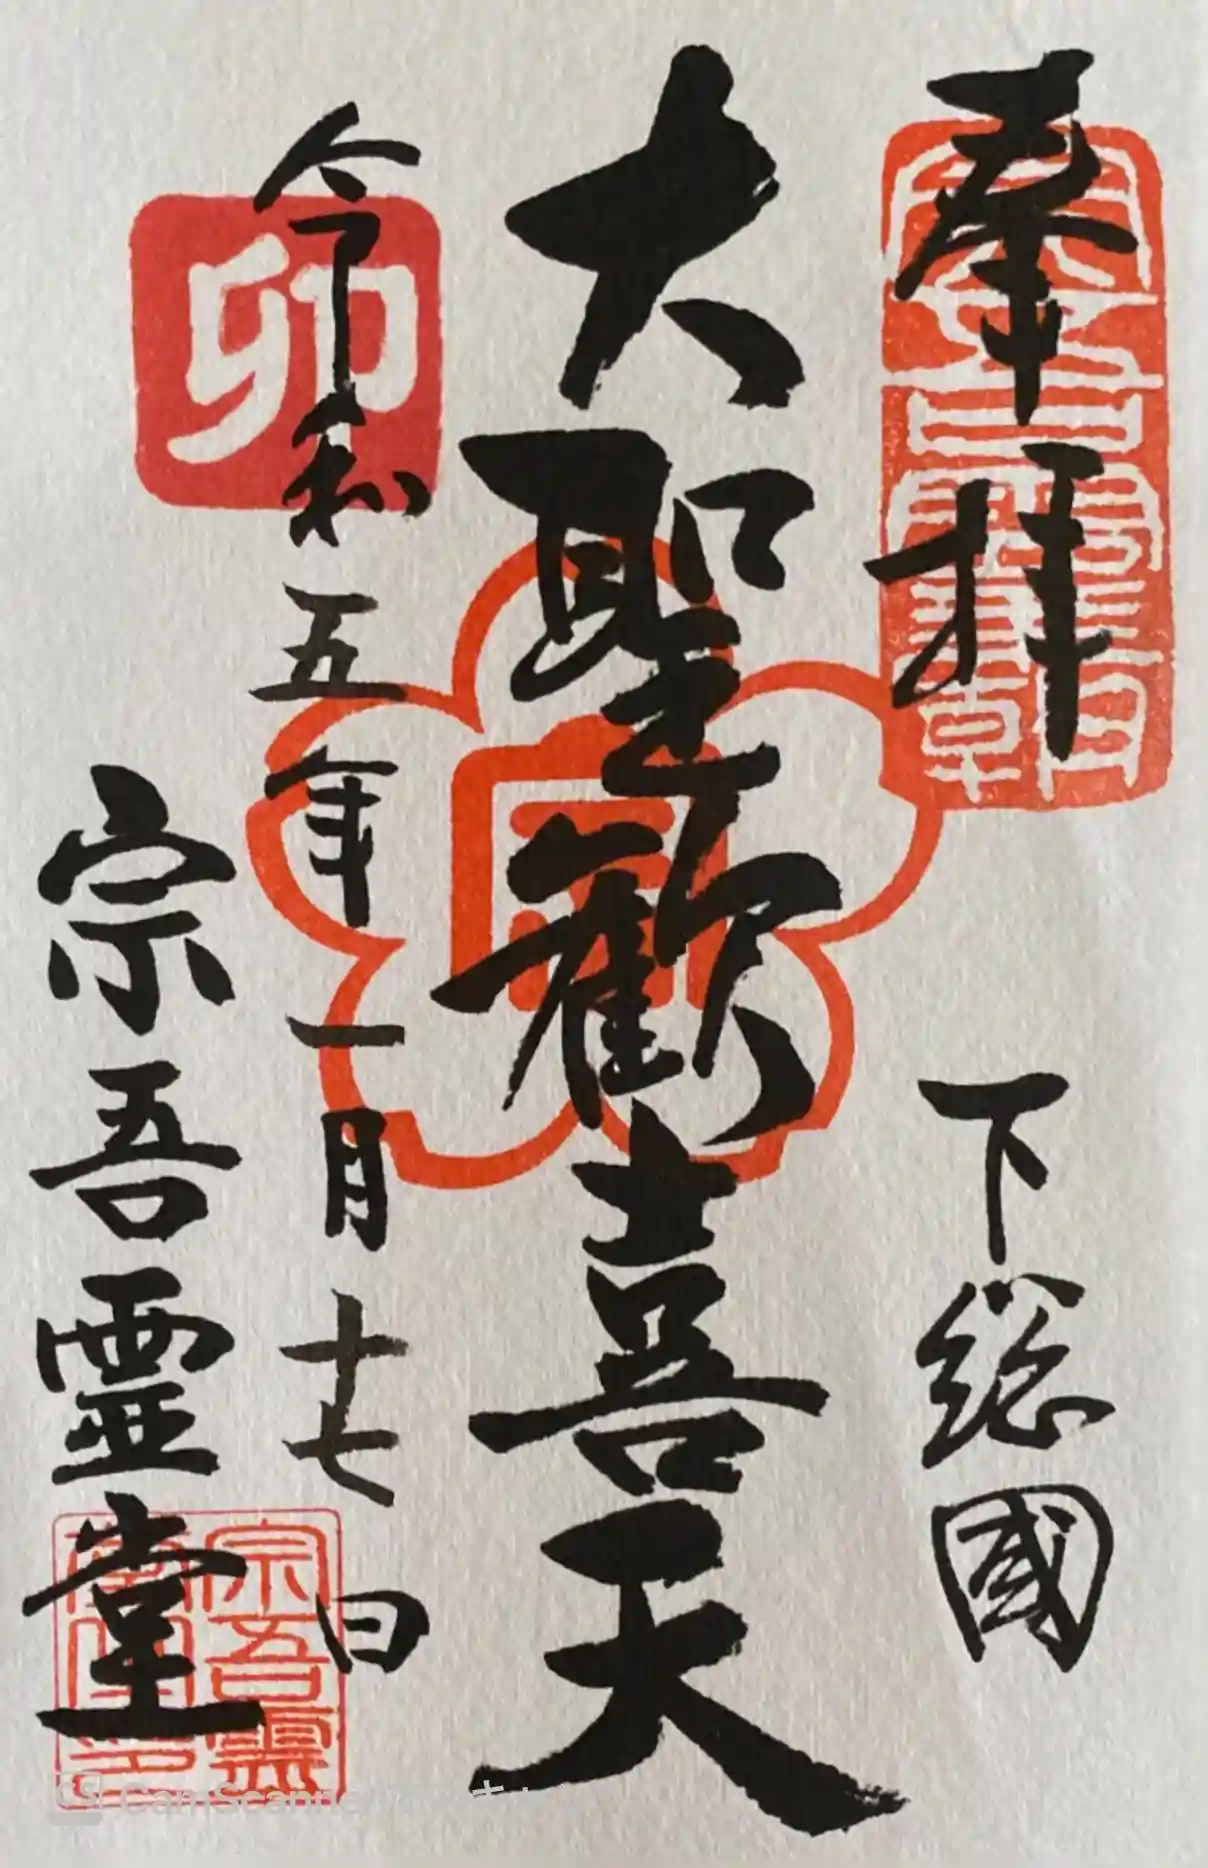 奉拝
下総國
大聖歡喜天
令和五年一月十七日
卯
宗吾霊堂
宗吾靈
CamScanne